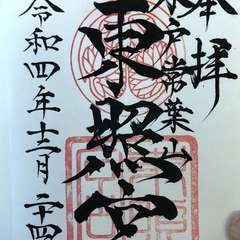 奉拝
水戸常葉山
東照宮
令和四年十二月二十四